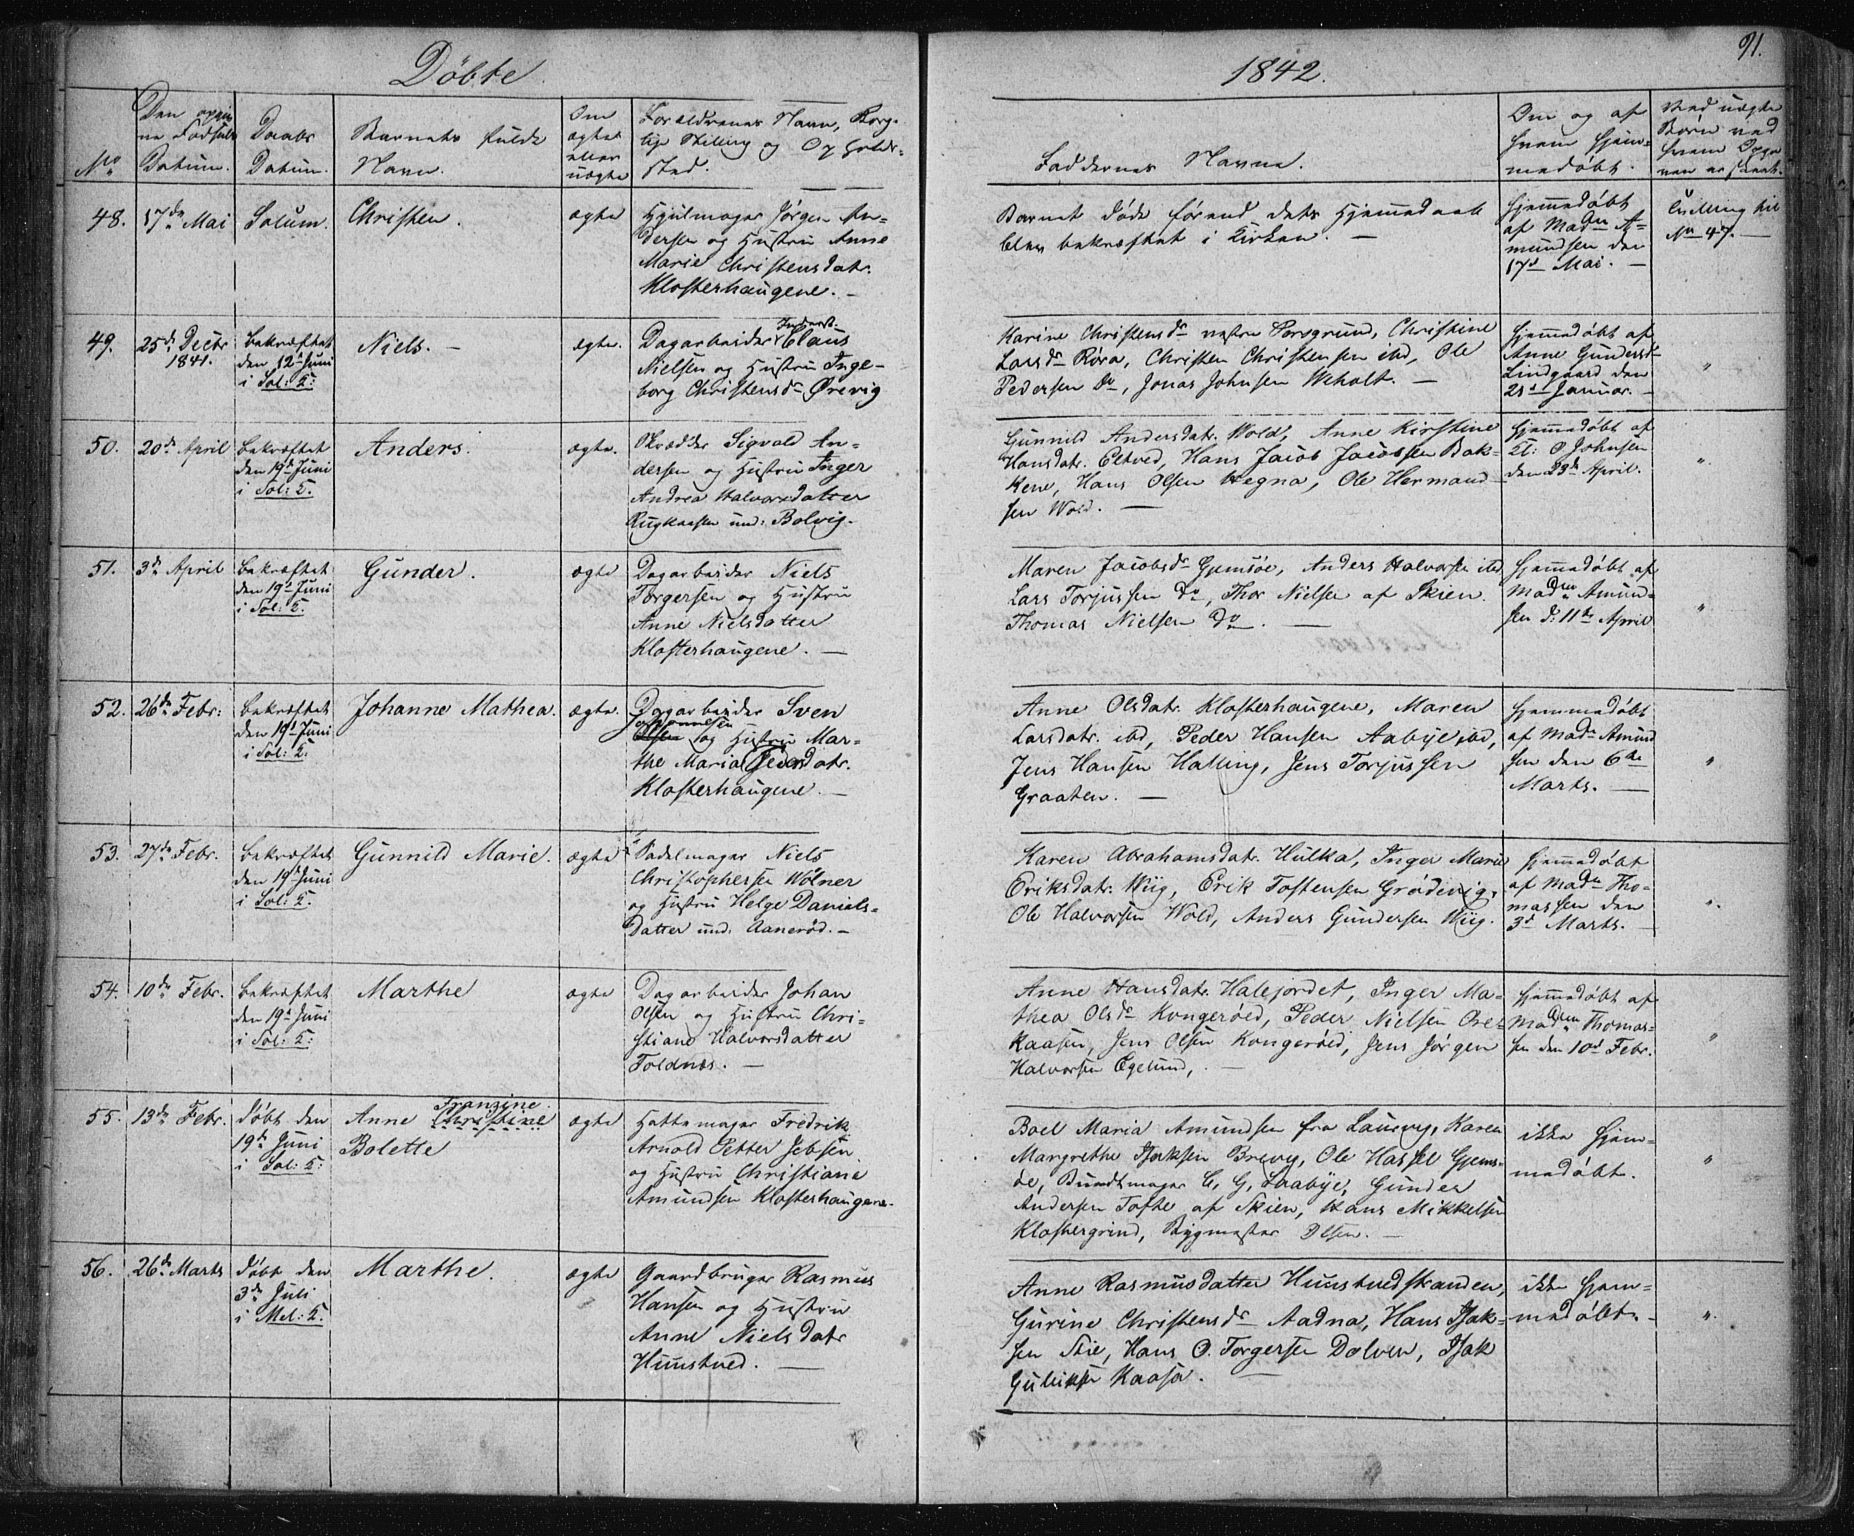 Döbte. 1842. 91.
No
Den
Datum.
Daabs
Datum.
Barnets fulde
Navn.
Om
ægte
eller
uægte
Forældrenes Navn, Borg-
lige Stilling og Opholds-
sted.
Faddernes Navne.
Om og af
hvem hjem-
medøbt.
Ved uægte
Børn ved
48. 17de Mai Solum. Christen. ægte
Hjulmager Jörgen An-
dersen og Hustru Anne
Marie Christensdatr.
Klosterhaugene. —
Barnet døde førend dets Hjemmedaab
blev bekræftet i Kirken. —
hjemmedøbt
af Madm A-
mundsen den
17d Mai. —
Tvilling til
No 47. —
49. 25de Decbr
1841.
bekræftet
den 12d Juni
i Sol: K:
Niels. — ægte.
Dagarbeider Claus
Nielsen og Hustru Inge-
borg Christensdr Ørevig
Karine Christensdr nestre Porsgrund, Christine
Larsdr Röra, Christen Christensen ibd, Ole
Pedersen Do, Jonas Johnsen Weholt. —
hjemmedøbt af
Anne Gundersdr
Lindgaard den
2den Januar. —
"
50. 20de April
bekræftet
den 19d Juni
i Sol: K.
Anders. ægte.
Skrædder Sigvald An-
dersen og Hustru Inger
Andrea Halvorsdatter
Rugkaasen und: Bolvig.
Gunnild Andersdatr. Wold, Anne Kirstine
Hansdatr. Eltved, Hans Jacob Jacobsen Bak-
kene, Hans Olsen Hegna, Ole Hermand-
sen Wold. —
hjemmedøbt af
O. Johnsen
den 23de April.
"
51. 3de April
bekræftet
den 19d Juni
i Sol: K.
Gunder. ægte
Dagarbeider Niels
Torgersen og Hustru
Anne Nielsdatter
Klosterhaugene. —
Maren Jacobsdr Gjemsöe, Anders Halvorsen ibd
Lars Torjussen Do, Thor Nielsen af Skien.
Thomas Nielsen Do. —
hjemmedøbt af
Madm Amund-
sen d: 11te April
"
52. 26de Febr:
bekræftet
den 19d Juni
i Sol: K.
Johanne Mathea. ægte.
Dagarbeider Sven
Johannesen
Olsen og Hustru Mar-
the Maria Pedersdatr.
Klosterhaugene. —
Anne Olsdatr. Klosterhaugene, Maren
Larsdatr. ibd, Peder Hansen Aabye ibd,
Jens Hansen Halling, Jens Torjussen
Graaten. —
hjemmedøbt
af Madm Amund
sen den 6te
Marts. —
"
53. 27de Febr.
bekræftet
den 19d Juni
i Sol: K.
Gunnild Marie. ægte
Sadelmager Niels
Christophersen Wölner
og Hustru Helge Daniels-
Datter und: Aanerød. —
Karen Abrahamsdatr. Hulka, Inger Marie
Eriksdatr. Wiig, Erik Tostensen Grödevig,
Ole Halvorsen Wold, Anders Gundersen Wiig.
hjemmedøbt
af Madm Tho-
massen den
3d Marts. —
"
54. 10de Febr.
bekræftet
den 19d Juni
i Sol: K.
Marthe ægte
Dagarbeider Johan
Olsen og Hustru Chri-
stiane Halvorsdatter
Foldnæs. —
Anne Hansdatr. Halejordet, Inger Ma-
thea Olsdr Kongeröed, Peder Nielsen Ore-
kaasen, Jens Olsen Kongeröed, Jens Jörgen
Halvorsen Egelund, —
hjemmedøbt af
Madm Thomas-
sen den 10d Febr.
"
55. 13de Febr.
døbt den
19de Juni
i Sol: K:
Franzine
Anne Christine
Bolette
ægte
Hattemager Fredrik
Arnold Petter Jebsen
og Hustru Christiane
Amundsen Klosterhaugene.
Boel Maria Amundsen fra Laurvig, Karen
Margrethe Isaksen Brevig, Ole Hassel Gjems-
öe, Bundtmager C. G. Aabye, Gunder
Andersen Tofte af Skien, Hans Mikkelsen
Klostergrind, Bygmester Olsen. —
ikke hjem-
medøbt.
"
56. 26de Marts
døbt den
3de Juli
i Mel: K.
Marthe. ægte
Gaardbruger Rasmus
Hansen og Hustru
Anne Nielsdatr
Himstved. —
Anne Rasmusdatter Himstvedstranden,
Gurine Christensdr Aadna, Hans Isak-
sen Stie, Hans O. Torgersen Dolven, Isak
Guliksen Kaasa.
ikke hjem-
medøbt. —
"